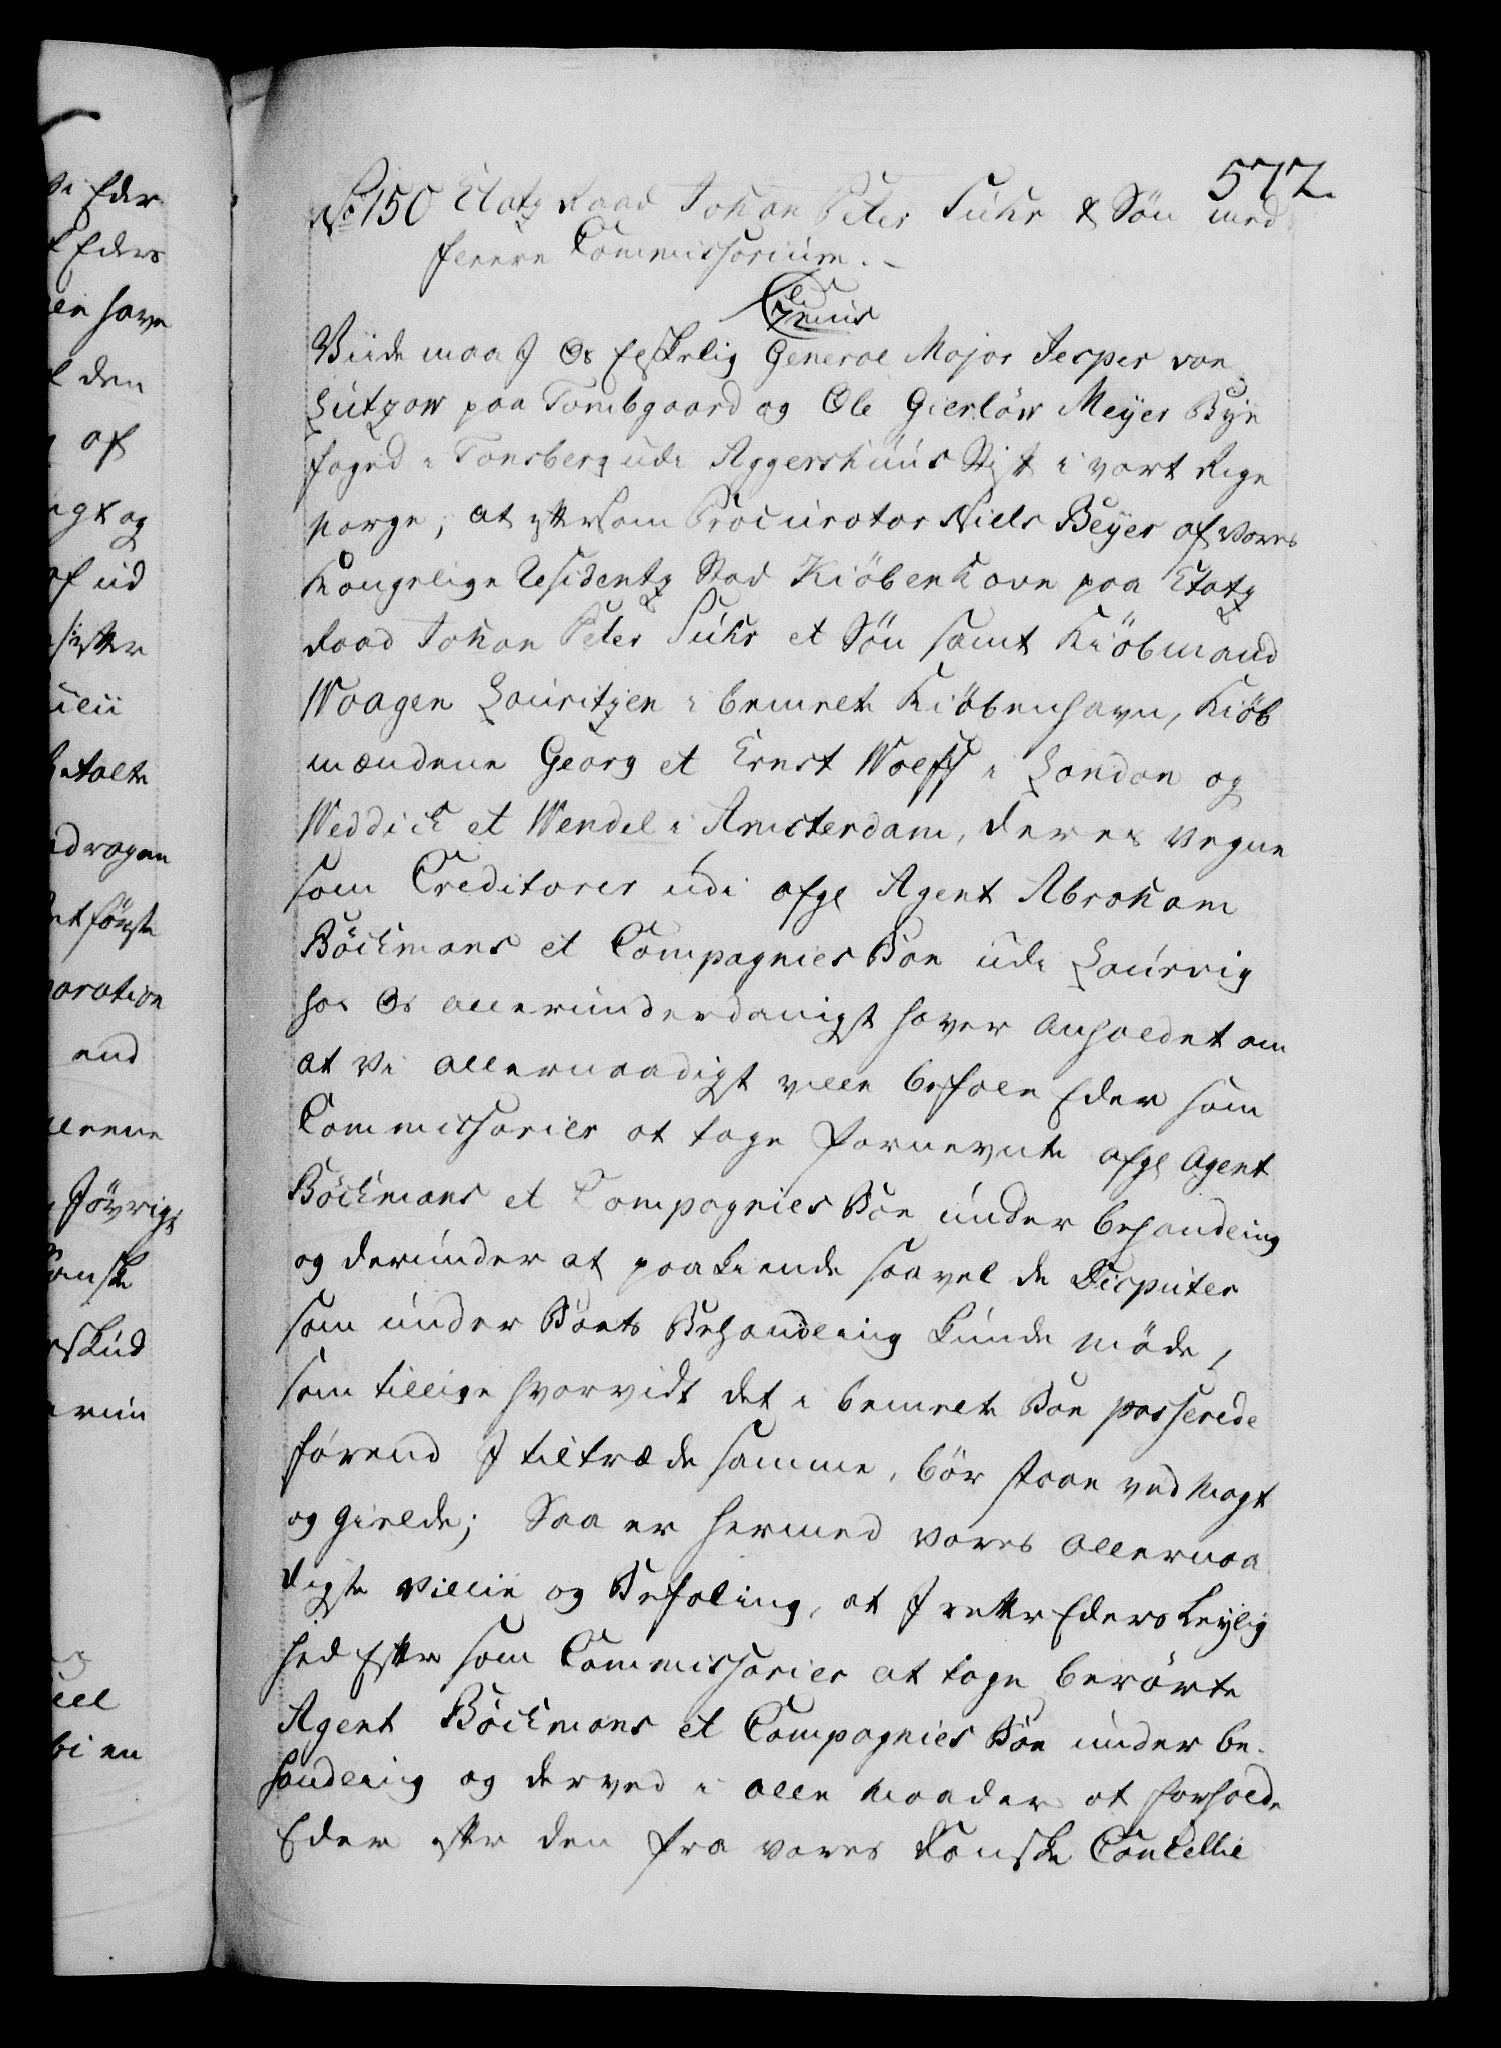 577.
No 150 Etatz Raad Johan Peter Suhr & Søn med
fleere Commissorium.
Viide maa I Os Elskelig General Major Jesper von
Lützow paa Tombgaard og Ole Gierløw Meyer Bye
foged i Tonsberg udi Aggershuus Stift i vort Rige
Norge, at eftersom Procurator Niels Beyer af vores
Kongelige Residentz Stad Kiöbenhavn paa Etatz
Raad Johan Peter Suhr et Søn samt Kiöbmand
Waagen Lauritzen i bemelte Kiöbenhavn, Kiöb
mændene Georg et Ernst Wolff i London og
Weddick et Wendel i Amsterdam, deres vegne
som Creditorer udi afgl Agent Abraham
Böckmans et Compagnies Boe udi Laurvig
hos Os allerunderdanigst haver Anholdet om
at Vi allernaadigst ville befale Eder som
Commissarier at tage fornevnte afgl Agent
Böckmans et Compagnies Boe under behandling
og derunder at paakiende saavel de Disputer
som under Boets Behandling kunde møde,
som tillige hvorvidt det i bemelte Boe passerede
förend I tiltræde samme, bör staae ved Magt
og Gielde; Saa er hermed vores allernaa
digste Villie og Befaling, at I rette Eders Leylig
hed Efter som Commissarier at tage berörte
Agent Böckmans et Compagnies Boe under be-
handling og derved i alle Maader at forholde
Eder efter den fra vores Danske Cancellie